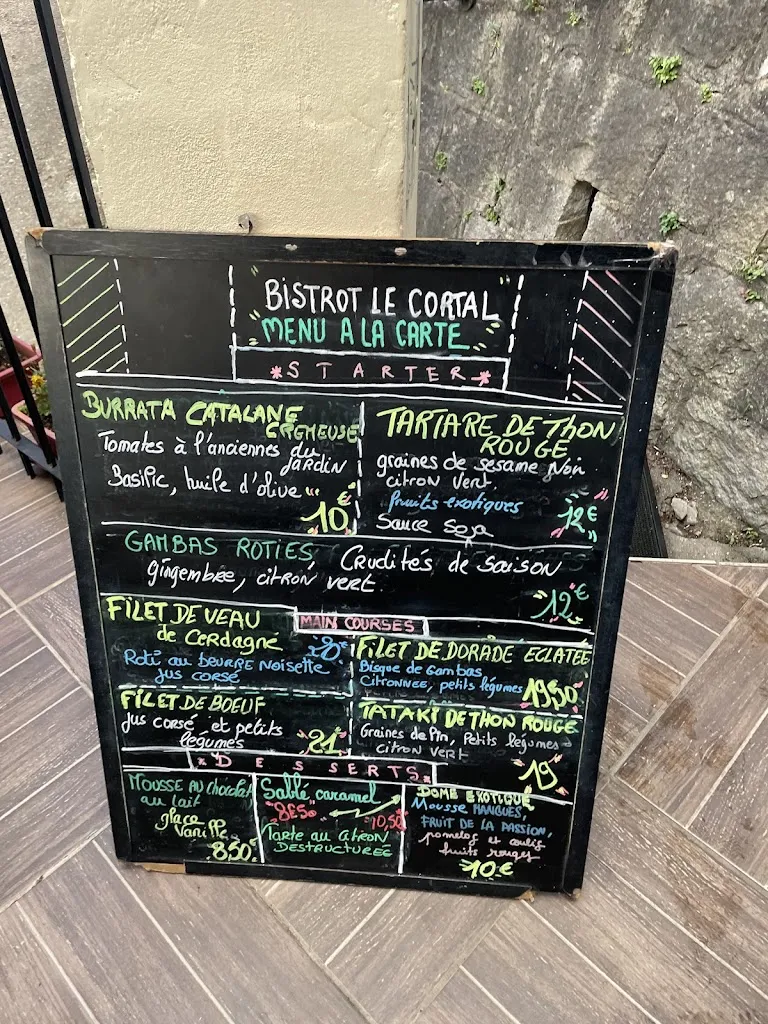 BISTROT LE CORTAL
MENU A LA CARTE
*STARTER*
BURRATA CATALANE
CREMEUSE
Tomates à l'anciennes du
JARDIN
Basilic, huile d'olive
10€
TARTARE DE THON
ROUGE
graines de sesame Noir
citron vert
fruits exotiques
Sauce Soja
12€
GAMBAS ROTIES Crudités de saison
gingembre, citron vert
12€
MAIN COURSES
FILET DE VEAU
de Cerdagne
20€
Roti au beurre Noisette
Jus corsé
FILET DE DORADE ECLATÉE
Bisque de Gambas
CITRONNEE, petits légumes 19,50
FILET DE BOEUF
Jus corsé et petits
légumes
21€
TATAKI DE THON ROUGE
Graines de Pin, Petits légumes
citron vert
19
*DESSERTS*
MOUSSE AU chocolat
au lait
glace
Vanille
8.50€
Sablé caramel
8€50
10,50
Tarte au citron
DESTRUCTUREE
DOME EXOTIQUE
Mousse MANGUES,
FRUIT DE LA PASSION,
pomelos et coulis
fruits rouges
10€